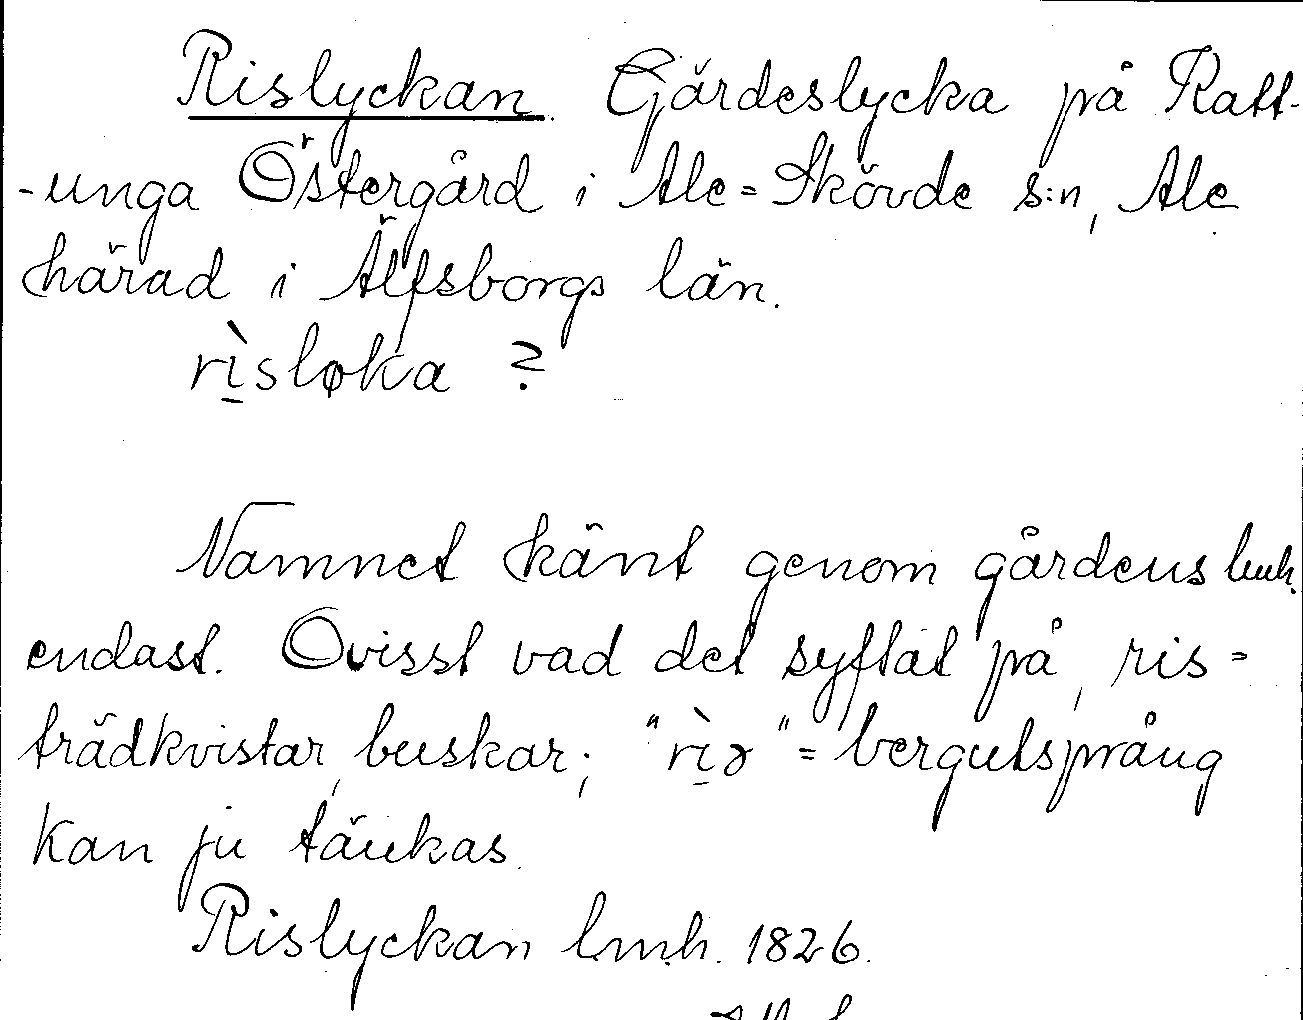 Rislyckan. Gärdeslycka på Ratt-
-unga Östergård i Ale=Skövde s:n, Ale
härad i Älfsborgs län.
rìsløka ?
Namnet känt genom gårdens lmh.
endast. Ovisst vad det syftat på, ris=
trädkvistar, buskar; "rìɜ" = bergutsprång
kan ju tänkas.
Rislyckan lmh. 1826.